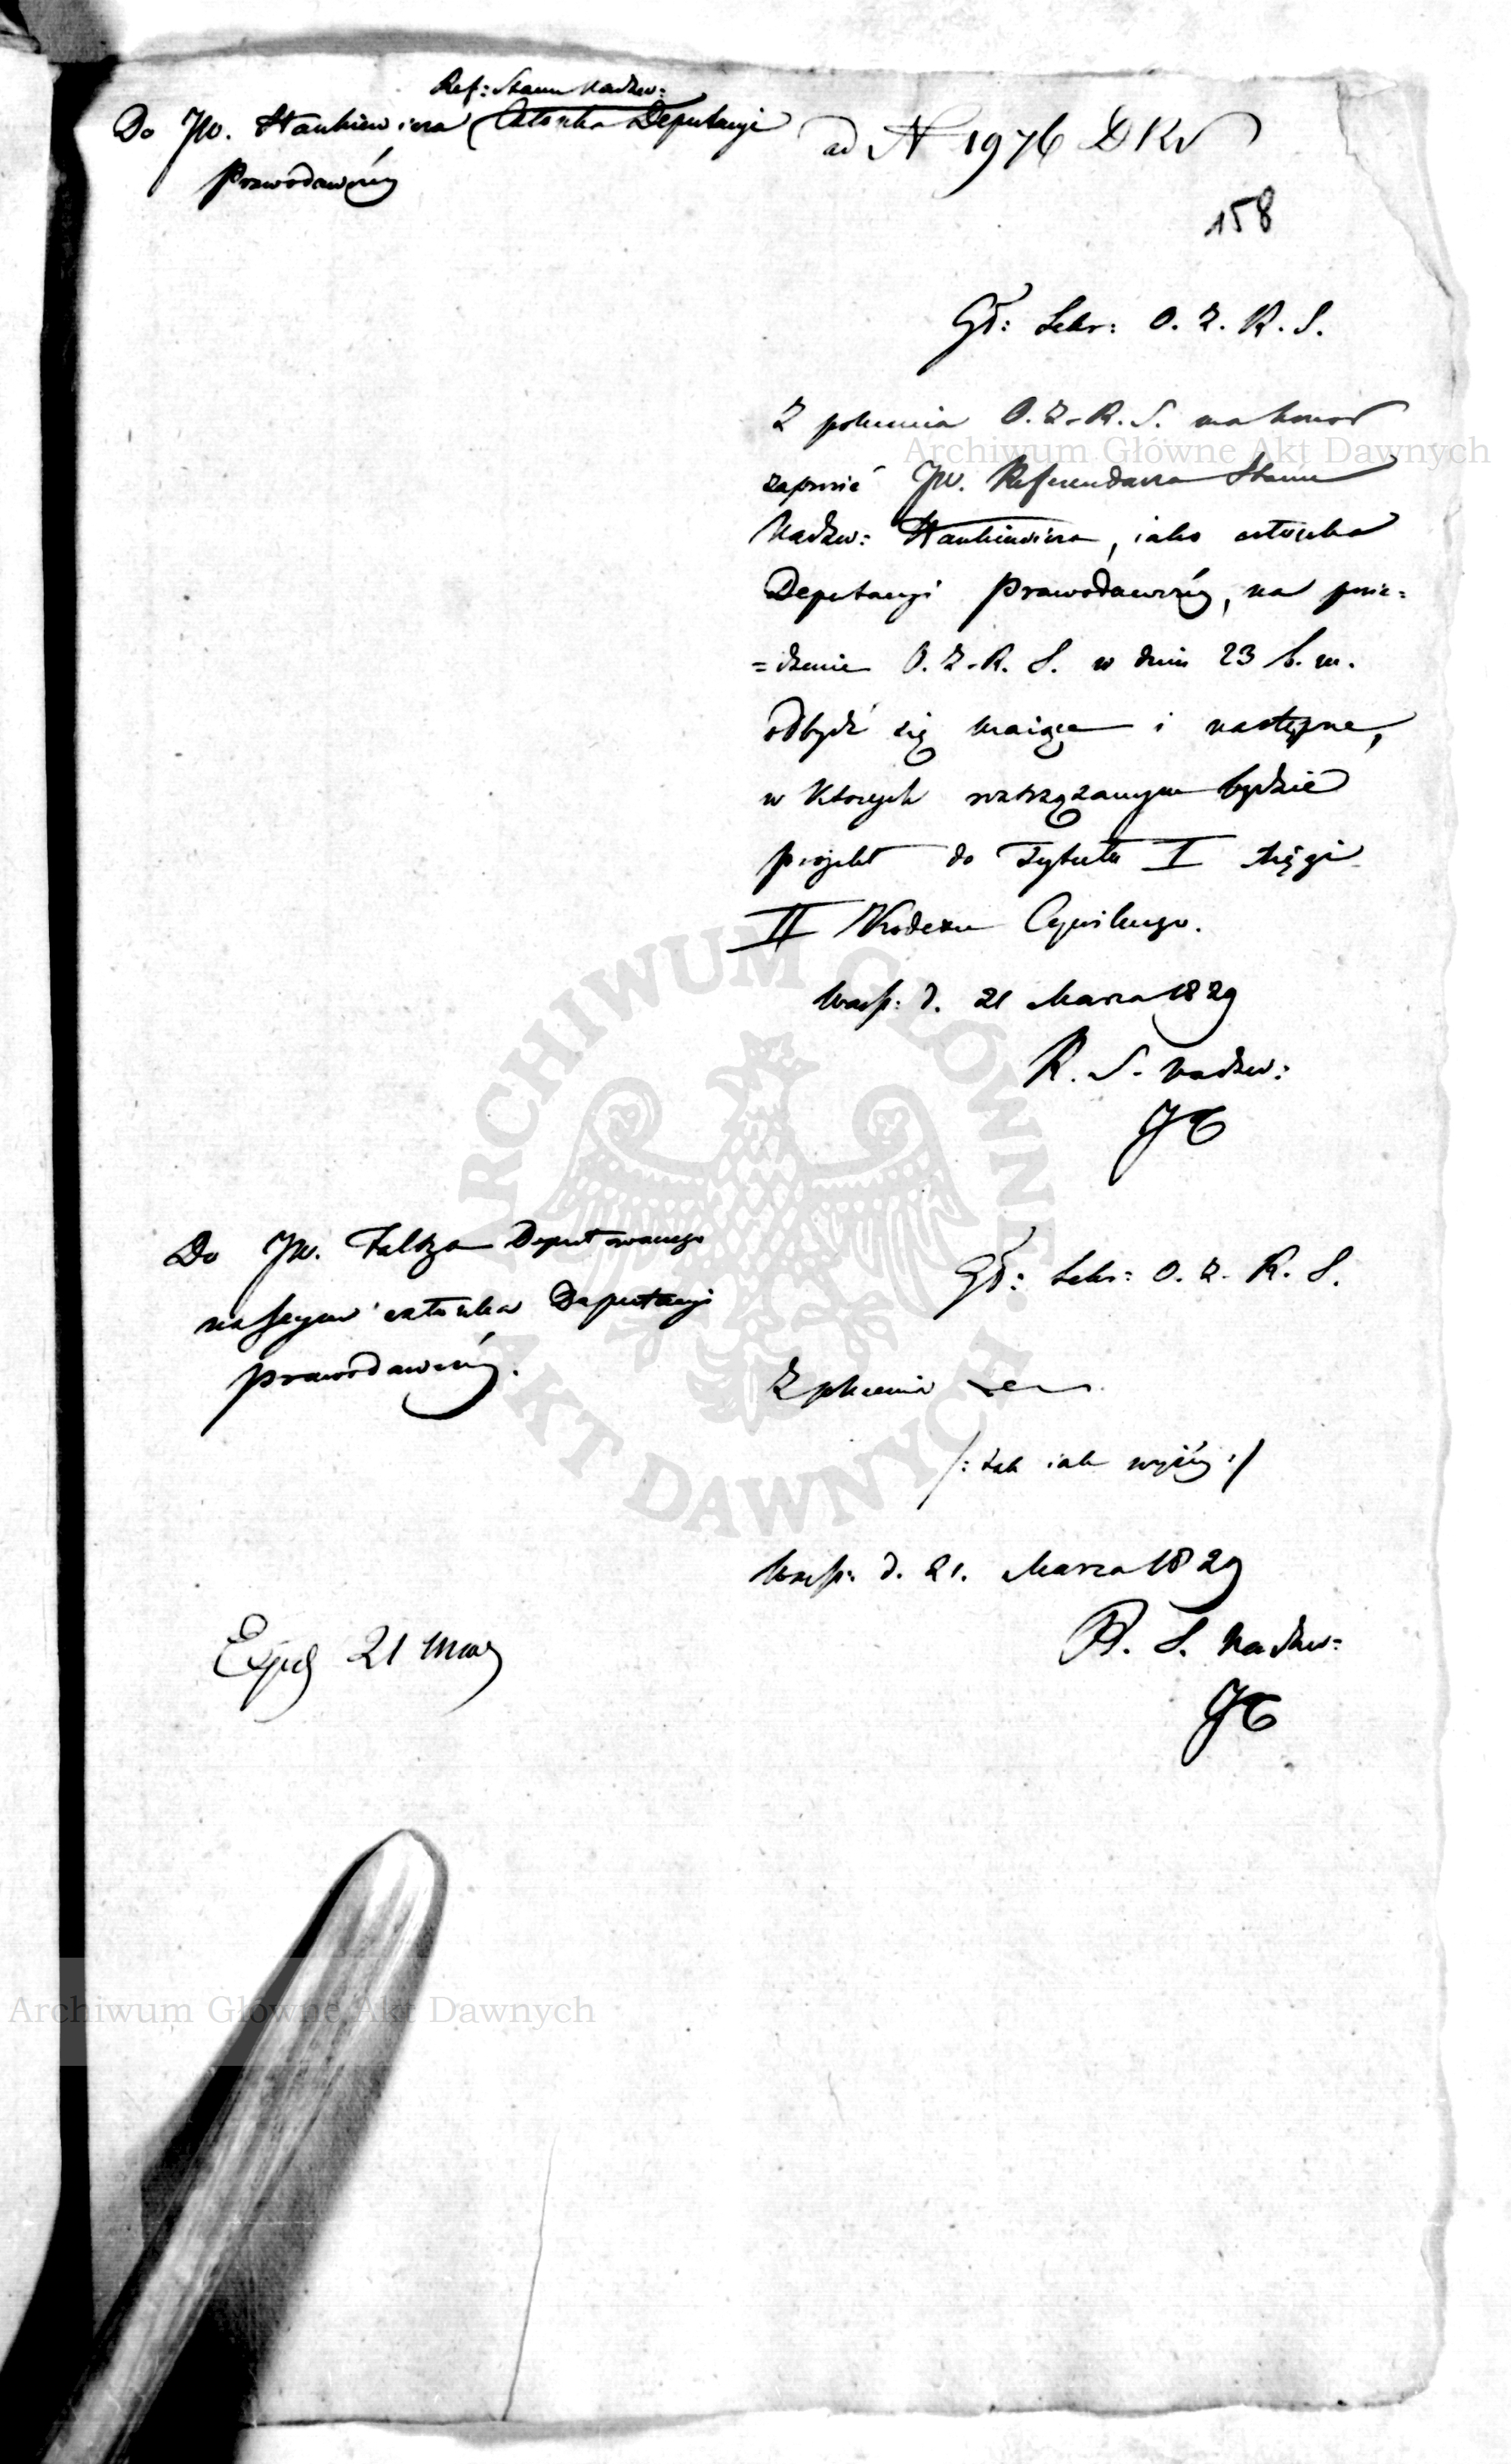 Ref: Stanu Nadzw:
Do JW. Hankiewicza Członka Deputacyi
Prawodawczéy
ad N 1976 DKP
158
Gł: Sekr: O. Z. R. S.
Z polecenia O. Z. R. S. ma honor
Archiwum Główne Akt Dawnych
zaprosić JW. Referendarza Stanu
Nadzw: Hankiewicza, iako członka
Deputacyi Prawodawczéy, na posie=
=dzenie O. Z. R. S. w dniu 23 b. m.
odbydź się maiące i następne,
w których roztrząsanym będzie
projekt do Tytułu I xięgi
II Kodexu Cywilnego.
Warsz: d. 21 Marca 1829
R. S. Nadzw:
ARCHIWUM GŁÓWNE AKT DAWNYCH
Do JW. Faltza Deputowanego
na Seym członka Deputacyi
prawodawczéy.
Gł: Sekr: O. Z. R. S.
Z polecenia
/: tak iak wyżéy :/
Warsz: d. 21. Marca 1829
R. S. Nadzw:
Exped 21 mar
Archiwum Główne Akt Dawnych